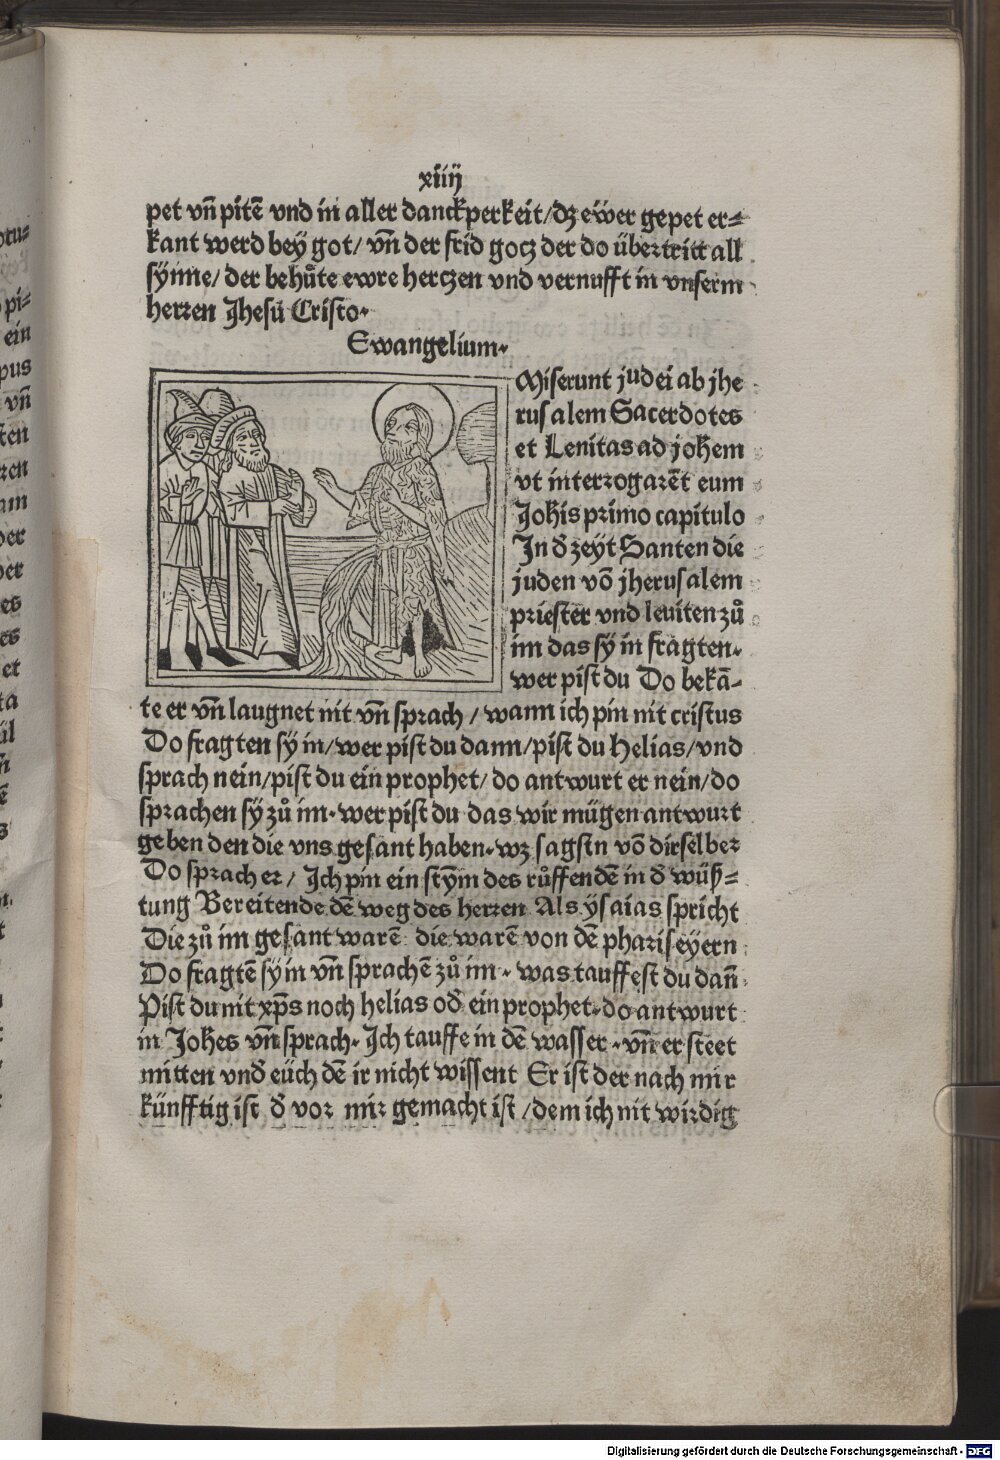 xiiij
pet vn̄ pitē vnd in aller danckperkeit/dz ewer gepet er=
kant werd bey got/ vn̄ der frid gotz der do übertritt all
synne/ der behůte ewre hertzen vnd vernufft in vnserm
herren Jhesū Cristo.
Ewangelium.
Miserunt judei ab jhe
rusalem Sacerdotes
et Lenitas ad johem
vt interrogarēt eum
Johis primo capitulo
In d̄ zeyt Santen die
juden vō jherusalem
priester vnd leuiten zů
im das sy in fragten.
wer pist du Do bekā-
te er vn̄ laugnet nit vn̄ sprach / wann ich pin nit cristus
Do fragten sy in/wer pist du dann/pist du Helias/vnd
sprach nein/pist du ein prophet/ do antwurt er nein/do
sprachen sy zů im. wer pist du das wir mügen antwurt
geben den die vns gesant haben. wz sagstn vō dir selber
Do sprach er/ Ich pin ein stym des růffendē in d̄ wüß=
tung Bereitende dē weg des herren Als ysaias spricht
Die zů im gesant warē die warē von dē phariseyern
Do fragtē sy in vn̄ sprachē zů im. was tauffest du dan̄
Pist du nit xp̄s noch helias od̄ ein prophet. do antwurt
in Johes vn̄ sprach. Ich tauffe in dē wasser. vn̄ er steet
mitten vnd̄ eüch dē ir nicht wissent Er ist der nach mir
künfftig ist d̄ vor mir gemacht ist /dem ich nit wirdig
Digitalisierung gefördert durch die Deutsche Forschungsgemeinschaft - DFG